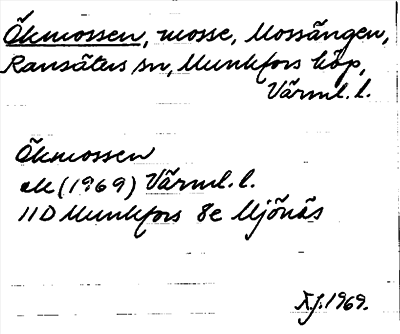 Ökmossen, mosse, Mossängen,
Ransäters sn, Munkfors köp,
Värml. l.
Ökmossen
ek (1969) Värml. l.
11D Munkfors 8e Mjönäs
1969.